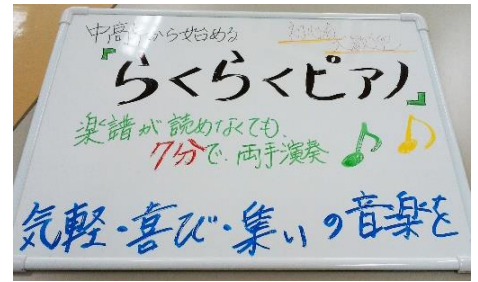 中高年から始める
『らくらくピアノ』
楽譜が読めなくても、
7分で、両手演奏
気軽・喜び・集いの音楽を